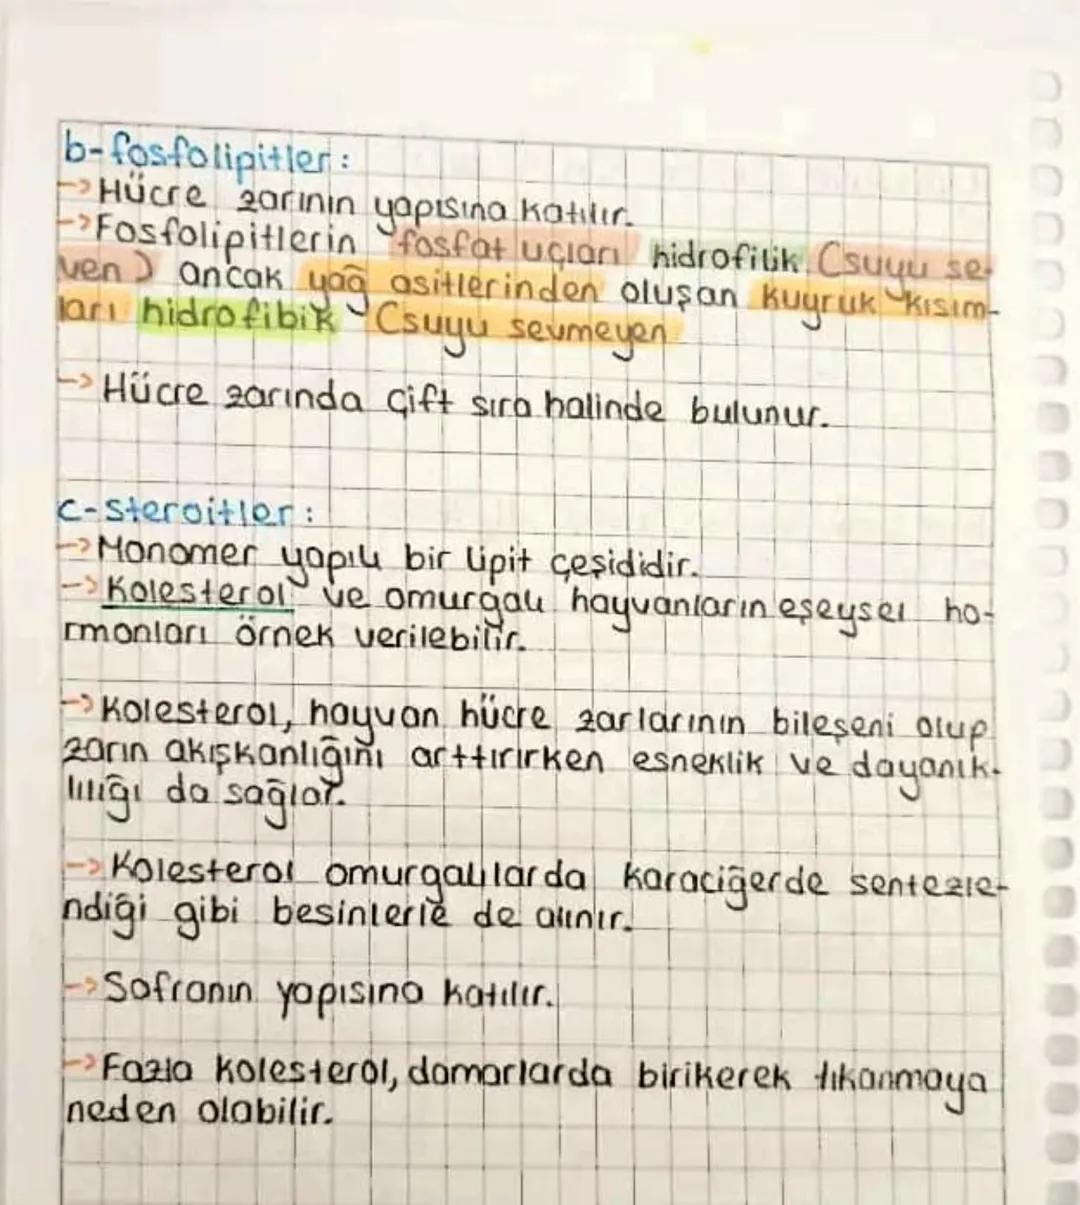 b-fosfolipitler:
->Hücre zarının yapısına katılır.
->Fosfolipitlerin fosfat uçları hidrofilik (suyu se-
ven) ancak yağ asitlerinden oluşan kuyruk kısım-
ları hidrofibik (suyu sevmeyen
->Hücre zarında çift sıra halinde bulunur.
c-steroitler:
->Monomer yapılı bir lipit çeşididir.
->Kolesterol ve omurgalı hayvanların eşeysel ho-
rmonları örnek verilebilir.
->Kolesterol, hayvan hücre zarlarının bileşeni olup
zarın akışkanlığını arttırırken esneklik ve dayanık-
lılığı da sağlar.
->Kolesterol omurgalılarda karaciğerde sentezle-
ndiği gibi besinlerle de alınır.
->Safranın yapısına katılır.
->Fazla kolesterol, damarlarda birikerek tıkanmaya
neden olabilir.